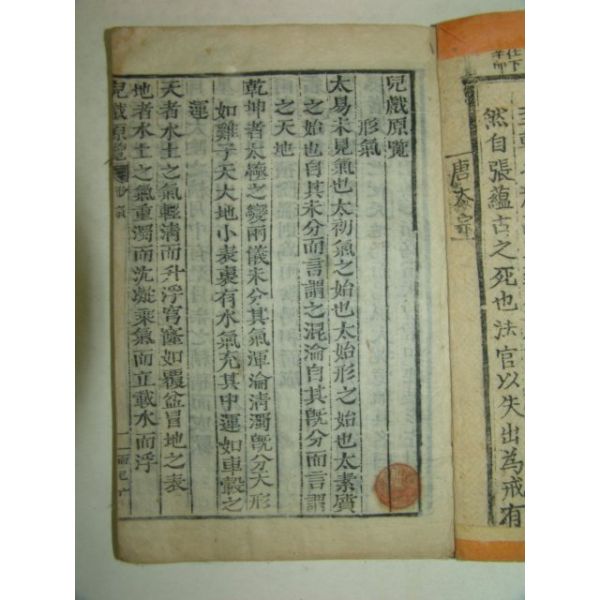 然自張蘊古之死也法官以失出為戒有
唐太宗
兒戲原覽
形氣
太易未見氣也太初氣之始也太始形之始也太素質
之始也自其未分而言謂之混淪自其旣分而言謂
之天地
乾坤者太極之變兩儀未分其氣渾淪清濁旣分天形
如雞子天大地小表裏有水氣充其中運如車轂之
運
天者水土之氣輕清而升浮穹窿如覆盆冒地之表
地者水土之氣重濁而沈凝乘氣而立載水而浮
兒戲原覽